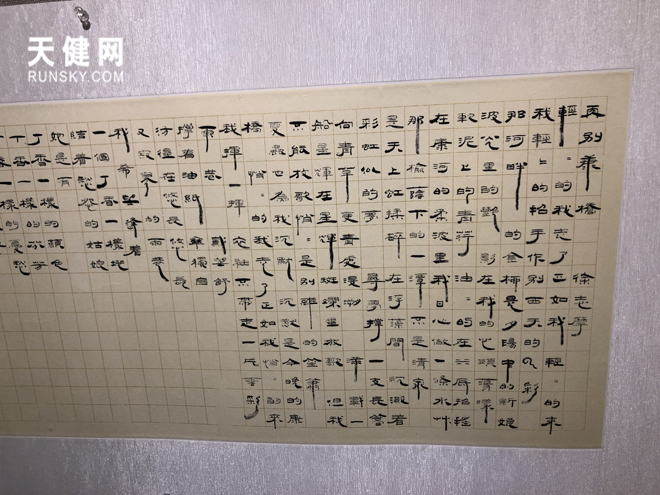 天健网
RUNSKY.COM
再别康桥 徐志摩
轻=的我走了正如我轻=的来
我轻=的招手作别西天的云彩
那河畔的金柳是夕阳中的新娘
波光里的艳影在我的心头荡漾
软泥上的青荇油=的在水底招摇
在康河的柔波里我甘心做一条水草
那榆荫下的一潭不是清泉
是天上虹揉碎在浮藻间沉淀着
彩虹似的梦寻梦撑一支长篙
向青草更青处漫溯满载一
船星辉在星辉斑斓里放歌但我
不能放歌悄=是别离的笙箫
夏虫也为我沉默沉默是今晚的康
桥悄=的我走了正如我悄=的来
我挥一挥衣袖不带走一片云彩
雨巷 戴望舒
撑着油纸伞独自
彷徨在悠长悠长
又寂寥的雨巷
我希望逢着
一个丁香一样地
结着愁怨的姑娘
她是有
丁香一样的颜色
丁香一样的芬芳